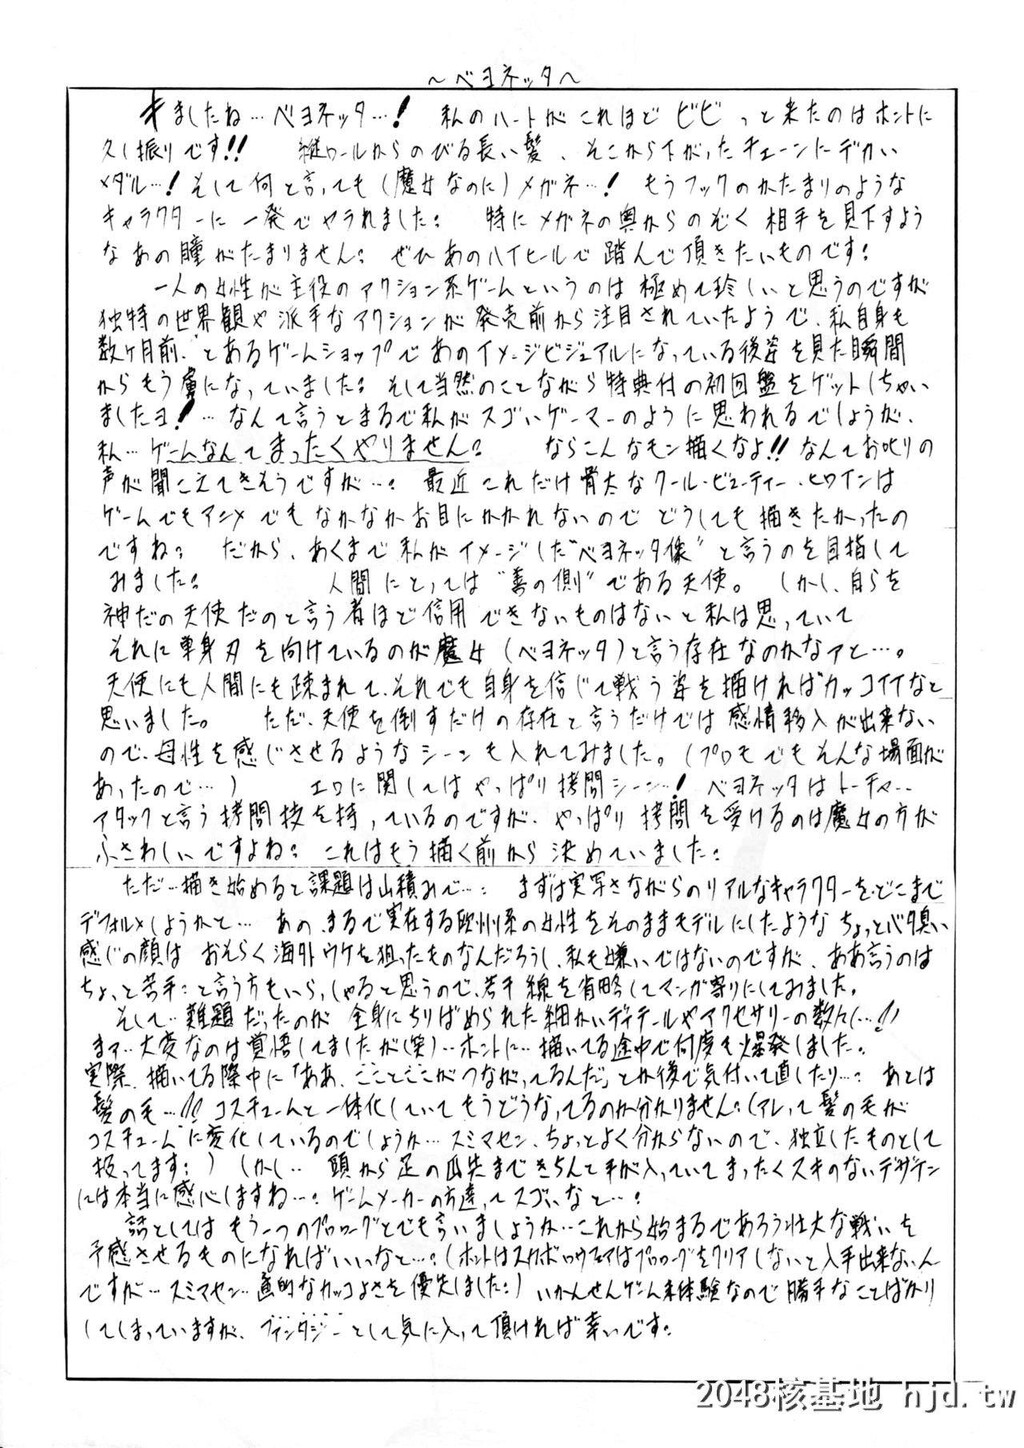 ～ベヨネッタ～
キましたね…ベヨネッタ…! 私のハートがこれほどビビっと来たのはホントに
久し振りです!! 縦ロールからのびる長い髪、そこから下がったチェーンにデカい
メダル…! そして何と言っても(魔女なのに)メガネ…! もうフックのかたまりのような
キャラクターに一発でヤラれました。 特にメガネの奥からのぞく相手を見下すよう
なあの瞳がたまりません。 ぜひあのハイヒールで踏んで頂きたいものです!
一人の女性が主役のアクション系ゲームというのは極めて珍しいと思うのですが
独特の世界観や派手なアクションが発売前から注目されていたようで、私自身も
数ヶ月前、とあるゲームショップであのイメージビジュアルになっている後姿を見た瞬間
からもう虜になっていました。 そして当然のことながら特典付の初回盤をゲットしちゃい
ましたヨ!…なんて言うとまるで私がスゴいゲーマーのように思われるでしょうが、
私…ゲームなんてまったくやりません。 ならこんなモン描くなよ!!なんてお叱りの
声が聞こえてきそうですが…。 最近これだけ骨太なクール・ビューティー・ヒロインは
ゲームでもアニメでもなかなかお目にかかれないのでどうしても描きたかったの
ですね。 だから、あくまで私がイメージした“ベヨネッタ像”と言うのを目指して
みました。 人間にとっては“善の側”である天使。 しかし、自らを
神だの天使だのと言う者ほど信用できないものはないと私は思っていて
それに単身刃を向けているのが魔女(ベヨネッタ)と言う存在なのかなァと…。
天使にも人間にも疎まれて、それでも自身を信じて戦う姿を描ければカッコイイなと
思いました。 ただ、天使を倒すだけの存在と言うだけでは感情移入が出来ない
ので、母性を感じさせるようなシーンも入れてみました。(プロモでもそんな場面が
あったので…) エロに関してはやっぱり拷問シーン…! ベヨネッタはトーチャー…
アタックと言う拷問技を持っているのですが、やっぱり拷問を受けるのは魔女の方が
ふさわしいですよね。 これはもう描く前から決めていました。
ただ…描き始めると課題は山積みで…。 まずは実写さながらのリアルなキャラクターをどこまで
デフォルメしようかと… あの、まるで実在する欧州系の女性をそのままモデルにしたようなちょっとバタ臭い
感じの顔は おそらく海外ウケを狙ったものなんだろうし、私も嫌いではないのですが、ああ言うのは
ちょっと苦手。と言う方もいらっしゃると思うので、若干線を省略してマンガ寄りにしてみました。
そして…難題だったのが 全身にちりばめられた細かいディテールやアクセサリーの数々…!!
まァ…大変なのは覚悟してましたが(笑)…ホントに…描いてる途中で何度も爆発しました。
実際、描いてる際中に「ああ、こことここがつながってるんだ」とか後で気付いて直したり…。 あとは
髪の毛…!! コスチュームと一体化していてもうどうなってるのか分かりません。(アレって髪の毛が
コスチュームに変化しているのでしょうか…スミマセン、ちょっとよく分からないので、独立したものとして
扱ってます。) しかし… 頭から足の爪先まできちんと手が入っていてまったくスキのないデザイン
には本当に感心しますね…。ゲームメーカーの方達ってスゴいなと…。
話としては もう一つのプロローグとでも言いましょうか…これから始まるであろう壮大な戦いを
予感させるものになればいいなと…。(ホントはスカボロウフェアはプロローグをクリアしないと入手出来ないん
ですが…スミマセン…画的なカッコよさを優先しました。) いかんせんゲーム未体験なので勝手なことばかり
してしまっていますが、ファンタジーとして気に入って頂ければ幸いです。
2048核基地 hjd.tw